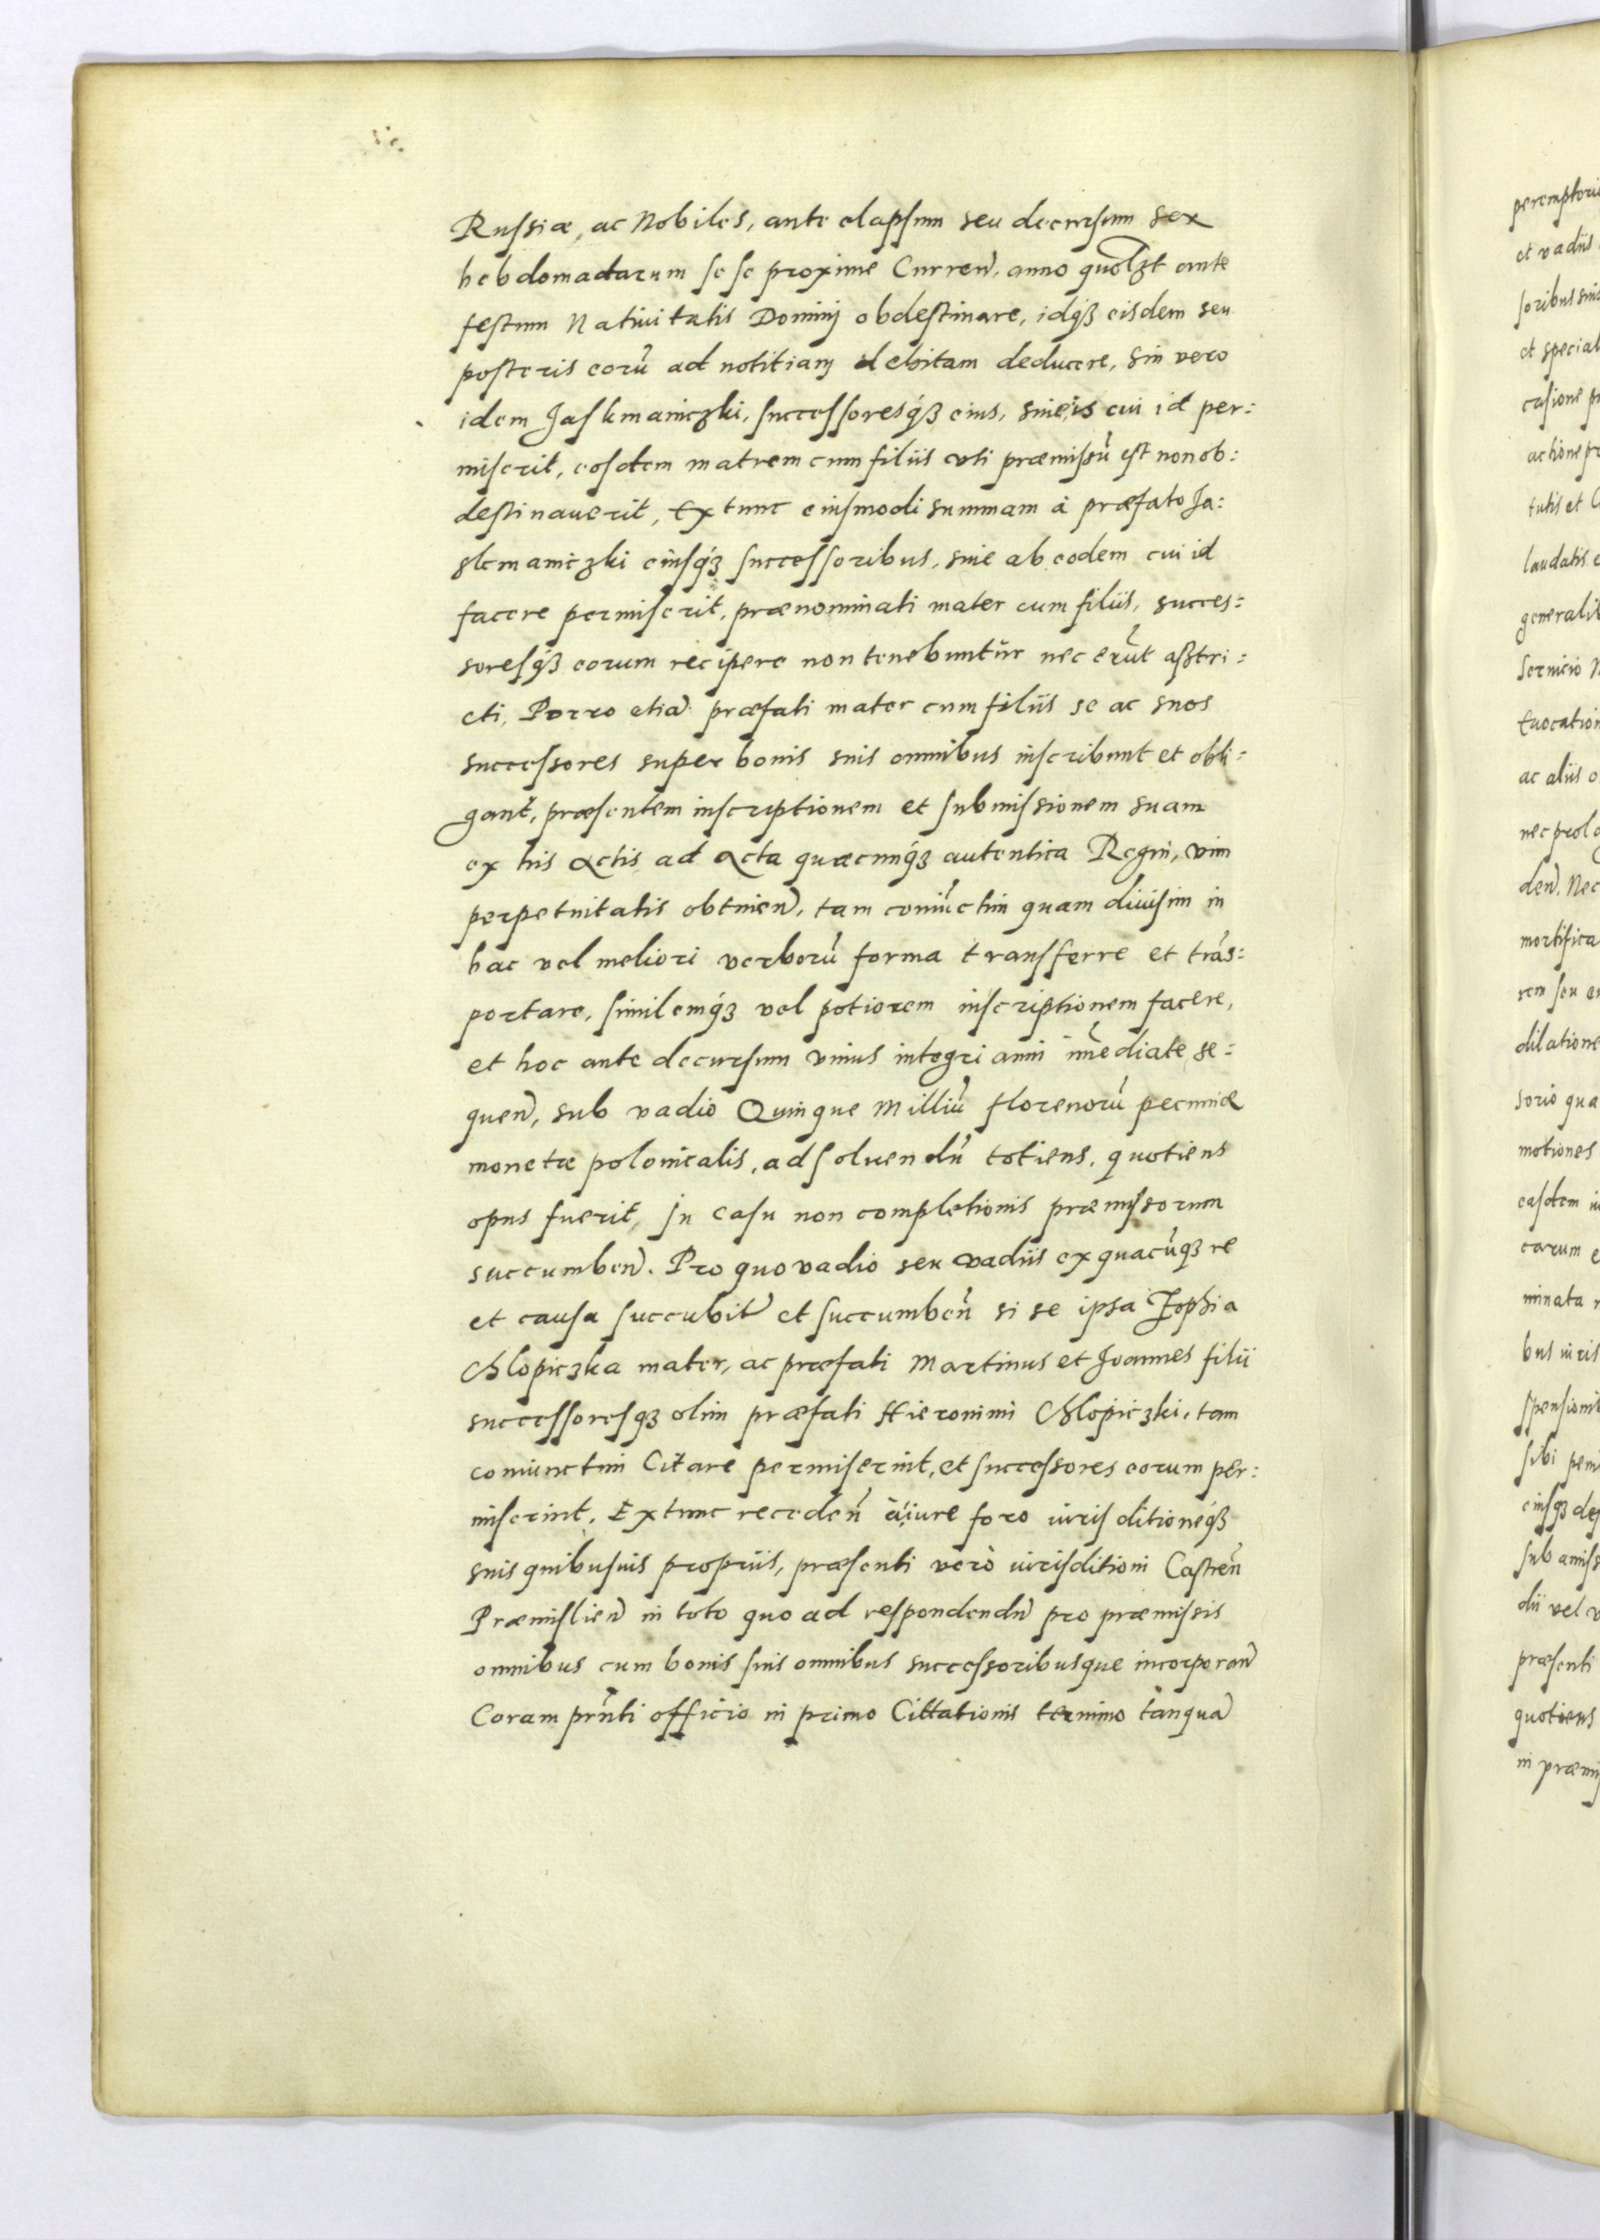 Russiæ, ac Nobiles, ante elapsum seu decursum sex
hebdomadarum se se proxime Curren̄. anno quol3t ante
festum Nativitatis Dominij obdestinare, idq́ꝫ eisdem seu
posteris eorū ad notitiam debitam deducere, sin vero
idem Jaskmaniczki, successoresq́ꝫ eius, siue is cui id per:
miserit, eosdem matrem cum filiis vti præmissū est non ob:
destinauerit, Ex tunc eiusmodi summam à præfato Ja:
skmaniczki eiusq́ꝫ successoribus, siue ab eodem cui id
facere permiserit, prænominati mater cum filiis, succes:
soresq́ꝫ eorum recipere non tenebuntur nec erūt astri:
cti, Porro etiā præfati mater cum filiis se ac suos
successores super bonis suis omnibus inscribunt et obli:
gant, præsentem inscriptionem et submissionem suam
ex his Actis ad Acta quæcunq́ꝫ autentica Regni, vim
perpetuitatis obtinen̄, tam coniūctim quam diuisim in
hac vel meliori verborū forma transferre et trās:
portare, similemq́ꝫ vel potiorem inscriptionem facere,
et hoc ante decursum vnius integri anni im̄ediate se:
quen̄, sub vadio Quinque Milliū florenorū pecuniæ
monetæ polonicalis, ad soluendū totiens, quotiens
opus fuerit, In casu non completionis præmissorum
succumben̄. Pro quo vadio seu vadiis ex quacūqꝫ re
et causa succubit̄ et succumben̄ si se ipsa Zophia
Chlopiczka mater, ac præfati Martinus et Joannes filii
successoresqꝫ olim præfati Hieronimi Chlopiczki, tam
coniunctim Citare permiserint, et successores eorum per:
miserint, Extunc receden̄ à iure foro iurisditioneq́ꝫ
suis quibusuis propriis, præsenti verò iurisditioni Castren̄
Præmislien̄ in toto quo ad respondendū pro præmissis
omnibus cum bonis suis omnibus successoribusque incorporan̄
Coram prn̄ti officio in primo Cittationis termino tanquā